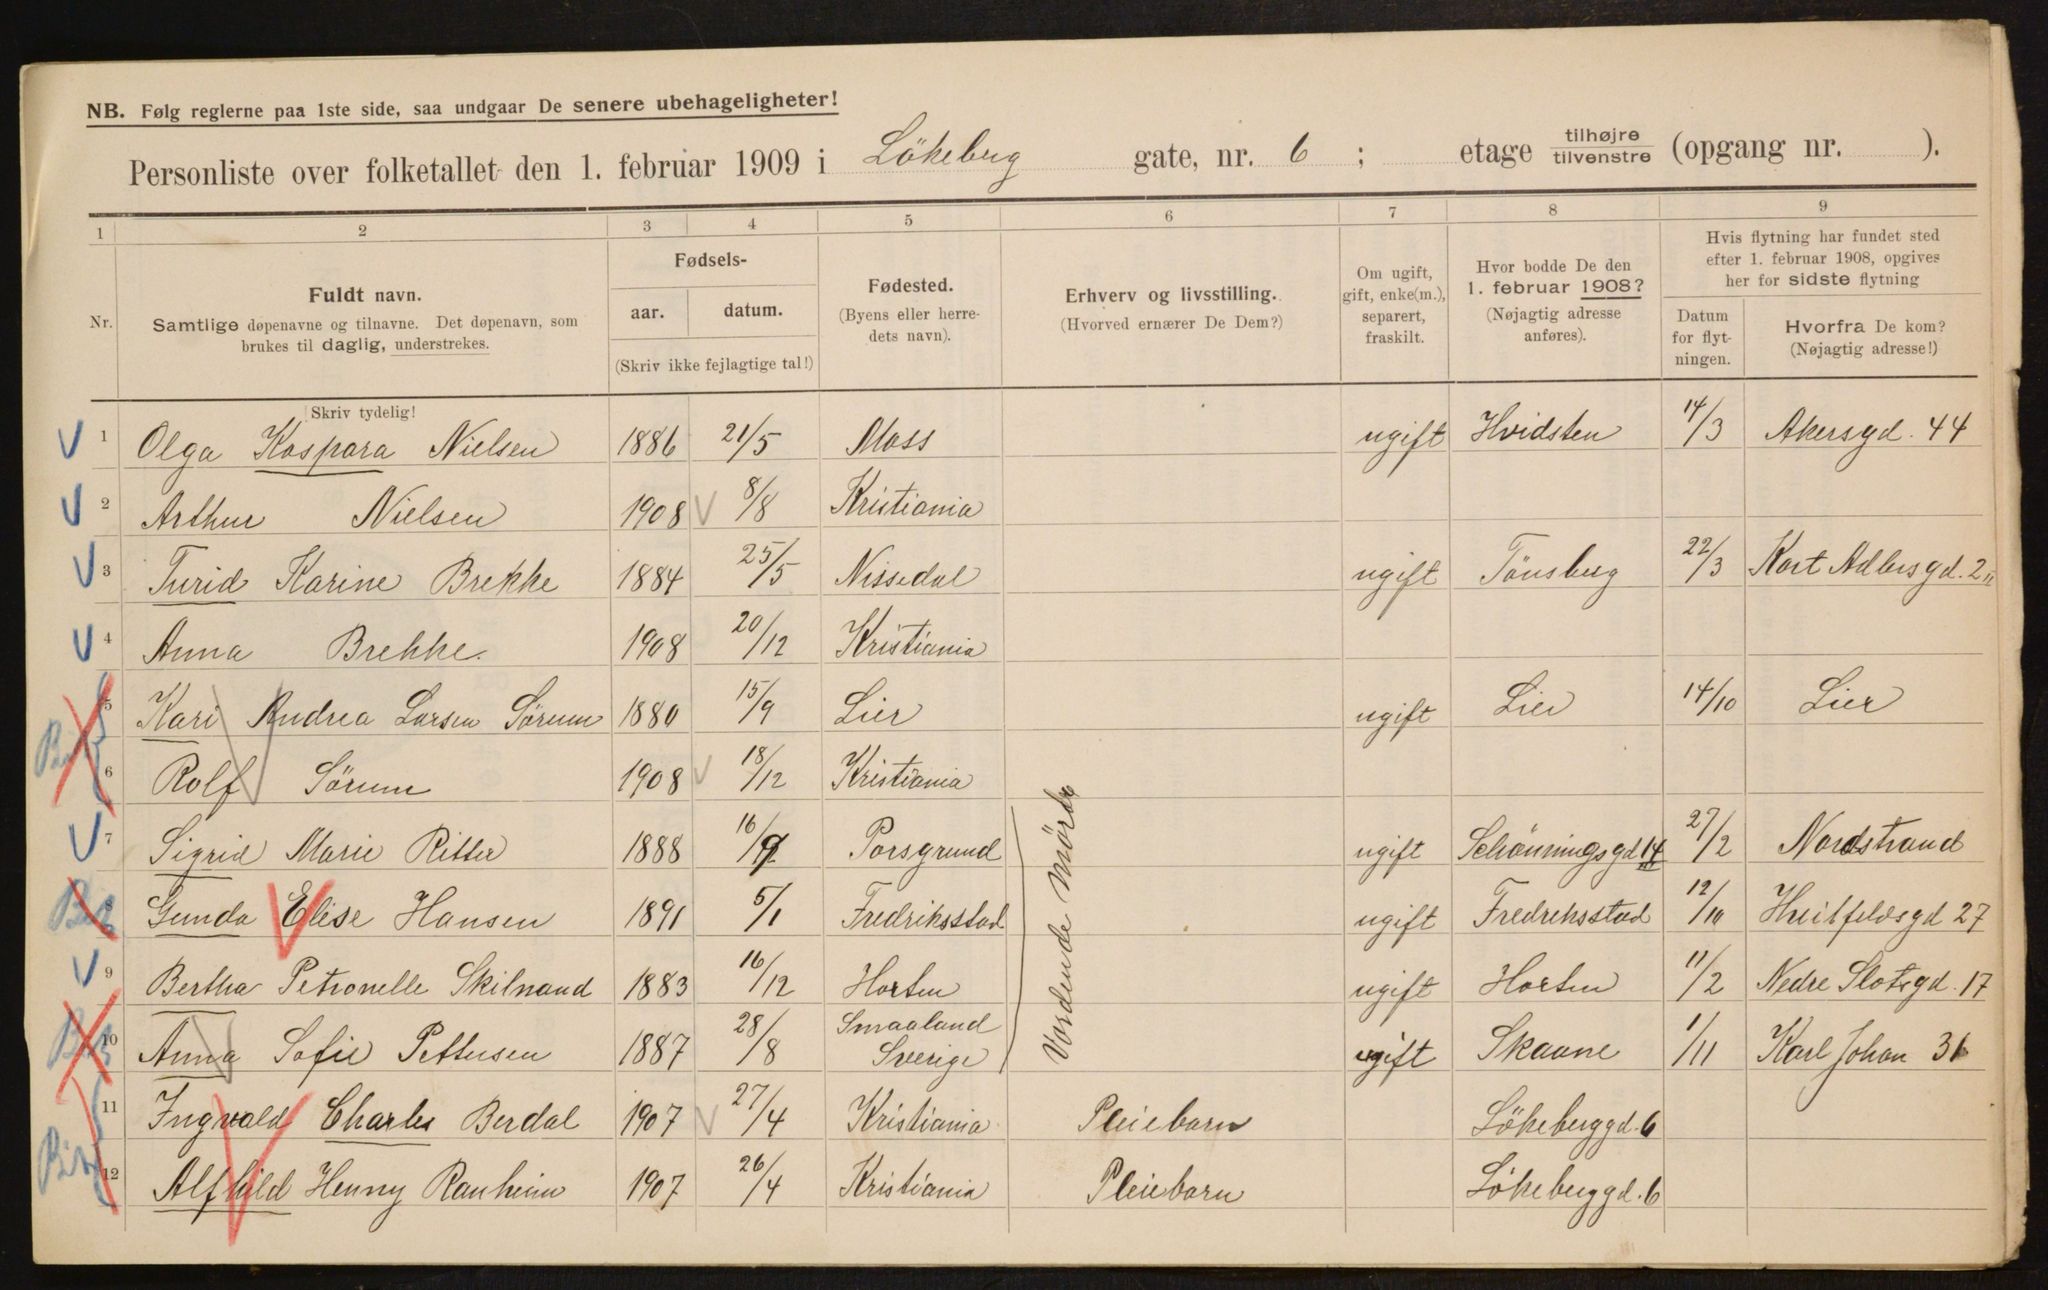 NB. Følg reglerne paa 1ste side, saa undgaar De senere ubehageligheter!
Personliste over folketallet den 1. februar 1909 i Lökeberg gate, nr. 6 ; etage tilhøjre tilvenstre (opgang nr. ).
1 2 3 4 5 6 7 8 9
Nr.
Fuldt navn.
Samtlige døpenavne og tilnavne. Det døpenavn, som
brukes til daglig, understrekes.
Skriv tydelig!
Fødsels-
aar. datum.
(Skriv ikke fejlagtige tal!)
Fødested.
(Byens eller herre-
dets navn).
Erhverv og livsstilling.
(Hvorved ernærer De Dem?)
Om ugift,
gift, enke(m.),
separert,
fraskilt.
Hvor bodde De den
1. februar 1908?
(Nøjagtig adresse
anføres).
Hvis flytning har fundet sted
efter 1. februar 1908, opgives
her for sidste flytning
Datum
for flyt-
ningen.
Hvorfra De kom?
(Nøjagtig adresse!)
1 Olga Kaspara Nielsen 1886 21/5 Moss ugift Hvidsten 14/3 Akersgd. 44
2 Arthur Nielsen 1908 8/8 Kristiania
3 Turid Karine Brekke 1884 25/5 Nissedal ugift Tönsberg 22/3 Kort Adlersgd. 2 II
4 Anna Brekke. 1908 20/12 Kristiania
5 Kari Andrea Larsen Sörum 1880 15/9 Lier ugift Lier 14/10 Lier
6 Rolf Sörum 1908 18/12 Kristiania
7 Sigrid Marie Ritter 1888 16/9 Porsgrund ugift Schönningsgd 14 27/2 Nordstrand
8 Gunda Elise Hansen 1891 5/1 Fredriksstad ugift Fredriksstad 12/10 Huitfeldsgd 27
9 Bertha Petronelle Skilnand 1883 16/12 Horten ugift Horten 11/2 Nedre Slotsgd. 17
10 Anna Sofie Pettersen 1887 28/8 Smaaland Sverige ugift Skaane 1/11 Karl Johan 31
Vordende mödre
11 Ingvald Charles Berdal 1907 27/4 Kristiania Pleiebarn Lökeberggd. 6
12 Alfhild Henny Ranheim 1907 26/4 Kristiania Pleiebarn Lökeberggd. 6